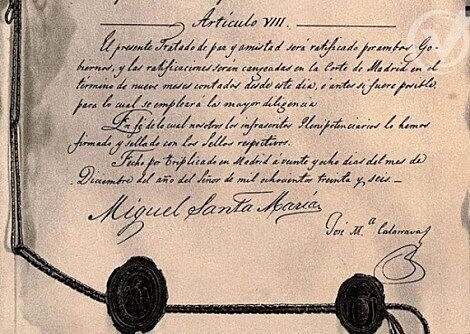 Artículo VIII.
El presente Tratado de paz y amistad será ratificado por ambos Go-
biernos, y las ratificaciones serán cangeadas en la Corte de Madrid en el
término de nueve meses contados desde este día, ó antes si fuere posible,
para lo cual se empleará la mayor diligencia
En fé de lo cual nosotros los infrascritos Plenipotenciarios lo hemos
firmado y sellado con los Sellos respetivos.
Fecho por triplicado en Madrid a veinte y ocho dias del mes de
Diciembre del año del Señor de mil ochocientos treinta y seis.
Miguel Santa María
José M.ª Calatrava